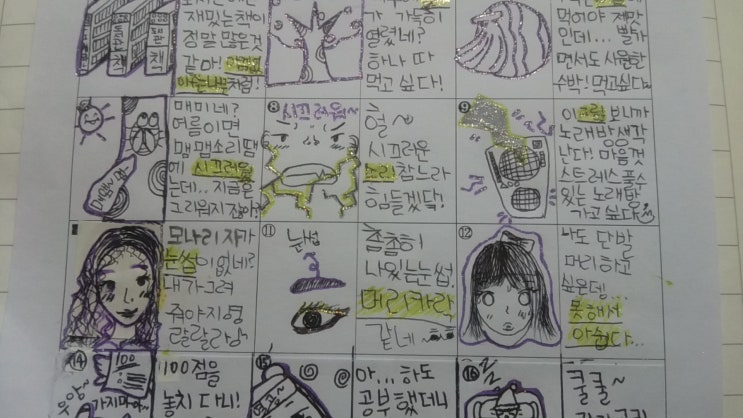 재밌는책이
정말 많은것
같아!
처럼!
책
책
가 가득히
열렸네?
하나 따
먹고 싶다!
먹어야 제맛
인데... 빨가
면서도 시원한
수박! 먹고싶다~
매미네?
여름이면
맴맴소리땜
에 시끄러웠
는데... 지금은
그리워지잖아!
⑧
시끄러워~
헐~
시끄러운
소리 참느라
힘들겠닼!
⑨
이그림 보니까
노래방생각
난다! 마음껏
스트레스 풀수
있는 노래방
가고 싶다
모나리자가
눈썹이 없네?
내가 그려
줘야지
랄랄라♪
⑪
눈썹
촘촘히
나있는 눈썹.
머리카락
같네~
⑫
나도 단발
머리 하고
싶은데...
못해서
아쉽다...
⑭
100
가지마
100점을
놓치 다니!
⑮
아... 하도
공부했더니
⑯
쿨쿨~